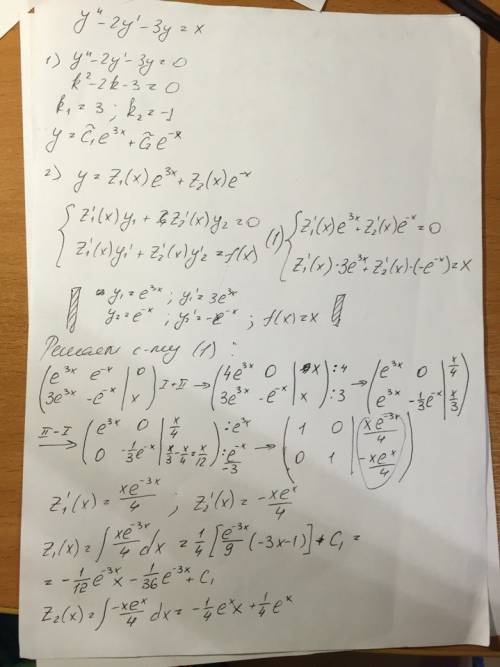 y'' - 2y' - 3y = x
1) y'' - 2y' - 3y = 0
k² - 2k - 3 = 0
k₁ = 3 ; k₂ = -1
y = C̃₁e^{3x} + C̃₂e^{-x}
2) y = Z₁(x)e^{3x} + Z₂(x)e^{-x}
{ Z₁'(x)y₁ + Z₂'(x)y₂ = 0 (1) { Z₁'(x)e^{3x} + Z₂'(x)e^{-x} = 0
Z₁'(x)y₁' + Z₂'(x)y₂' = f(x) Z₁'(x)·3e^{3x} + Z₂'(x)·(-e^{-x}) = x
y₁ = e^{3x} ; y₁' = 3e^{3x}
y₂ = e^{-x} ; y₂' = -e^{-x} ; f(x) = x
Решаем с-му (1) :
(e^{3x} e^{-x} | 0) I+II → (4e^{3x} 0 | x) :4 → (e^{3x} 0 | x/4)
(3e^{3x} -e^{-x} | x) (3e^{3x} -e^{-x} | x) :3 (e^{3x} -1/3e^{-x} | x/3)
II-I ⇒ (e^{3x} 0 | x/4) :e^{3x} → (1 0 | xe^{-3x}/4)
(0 -1/3e^{-x} | x/3 - x/4 = x/12) :e^{-x}/-3 (0 1 | -xe^{x}/4)
Z₁'(x) = xe^{-3x}/4 , Z₂'(x) = -xe^{x}/4
Z₁(x) = ∫ xe^{-3x}/4 dx = 1/4 [e^{-3x}/9 (-3x-1)] + C₁ =
= -1/12 e^{-3x}x - 1/36 e^{-3x} + C₁
Z₂(x) = ∫ -xe^{x}/4 dx = -1/4 e^{x}x + 1/4 e^{x}